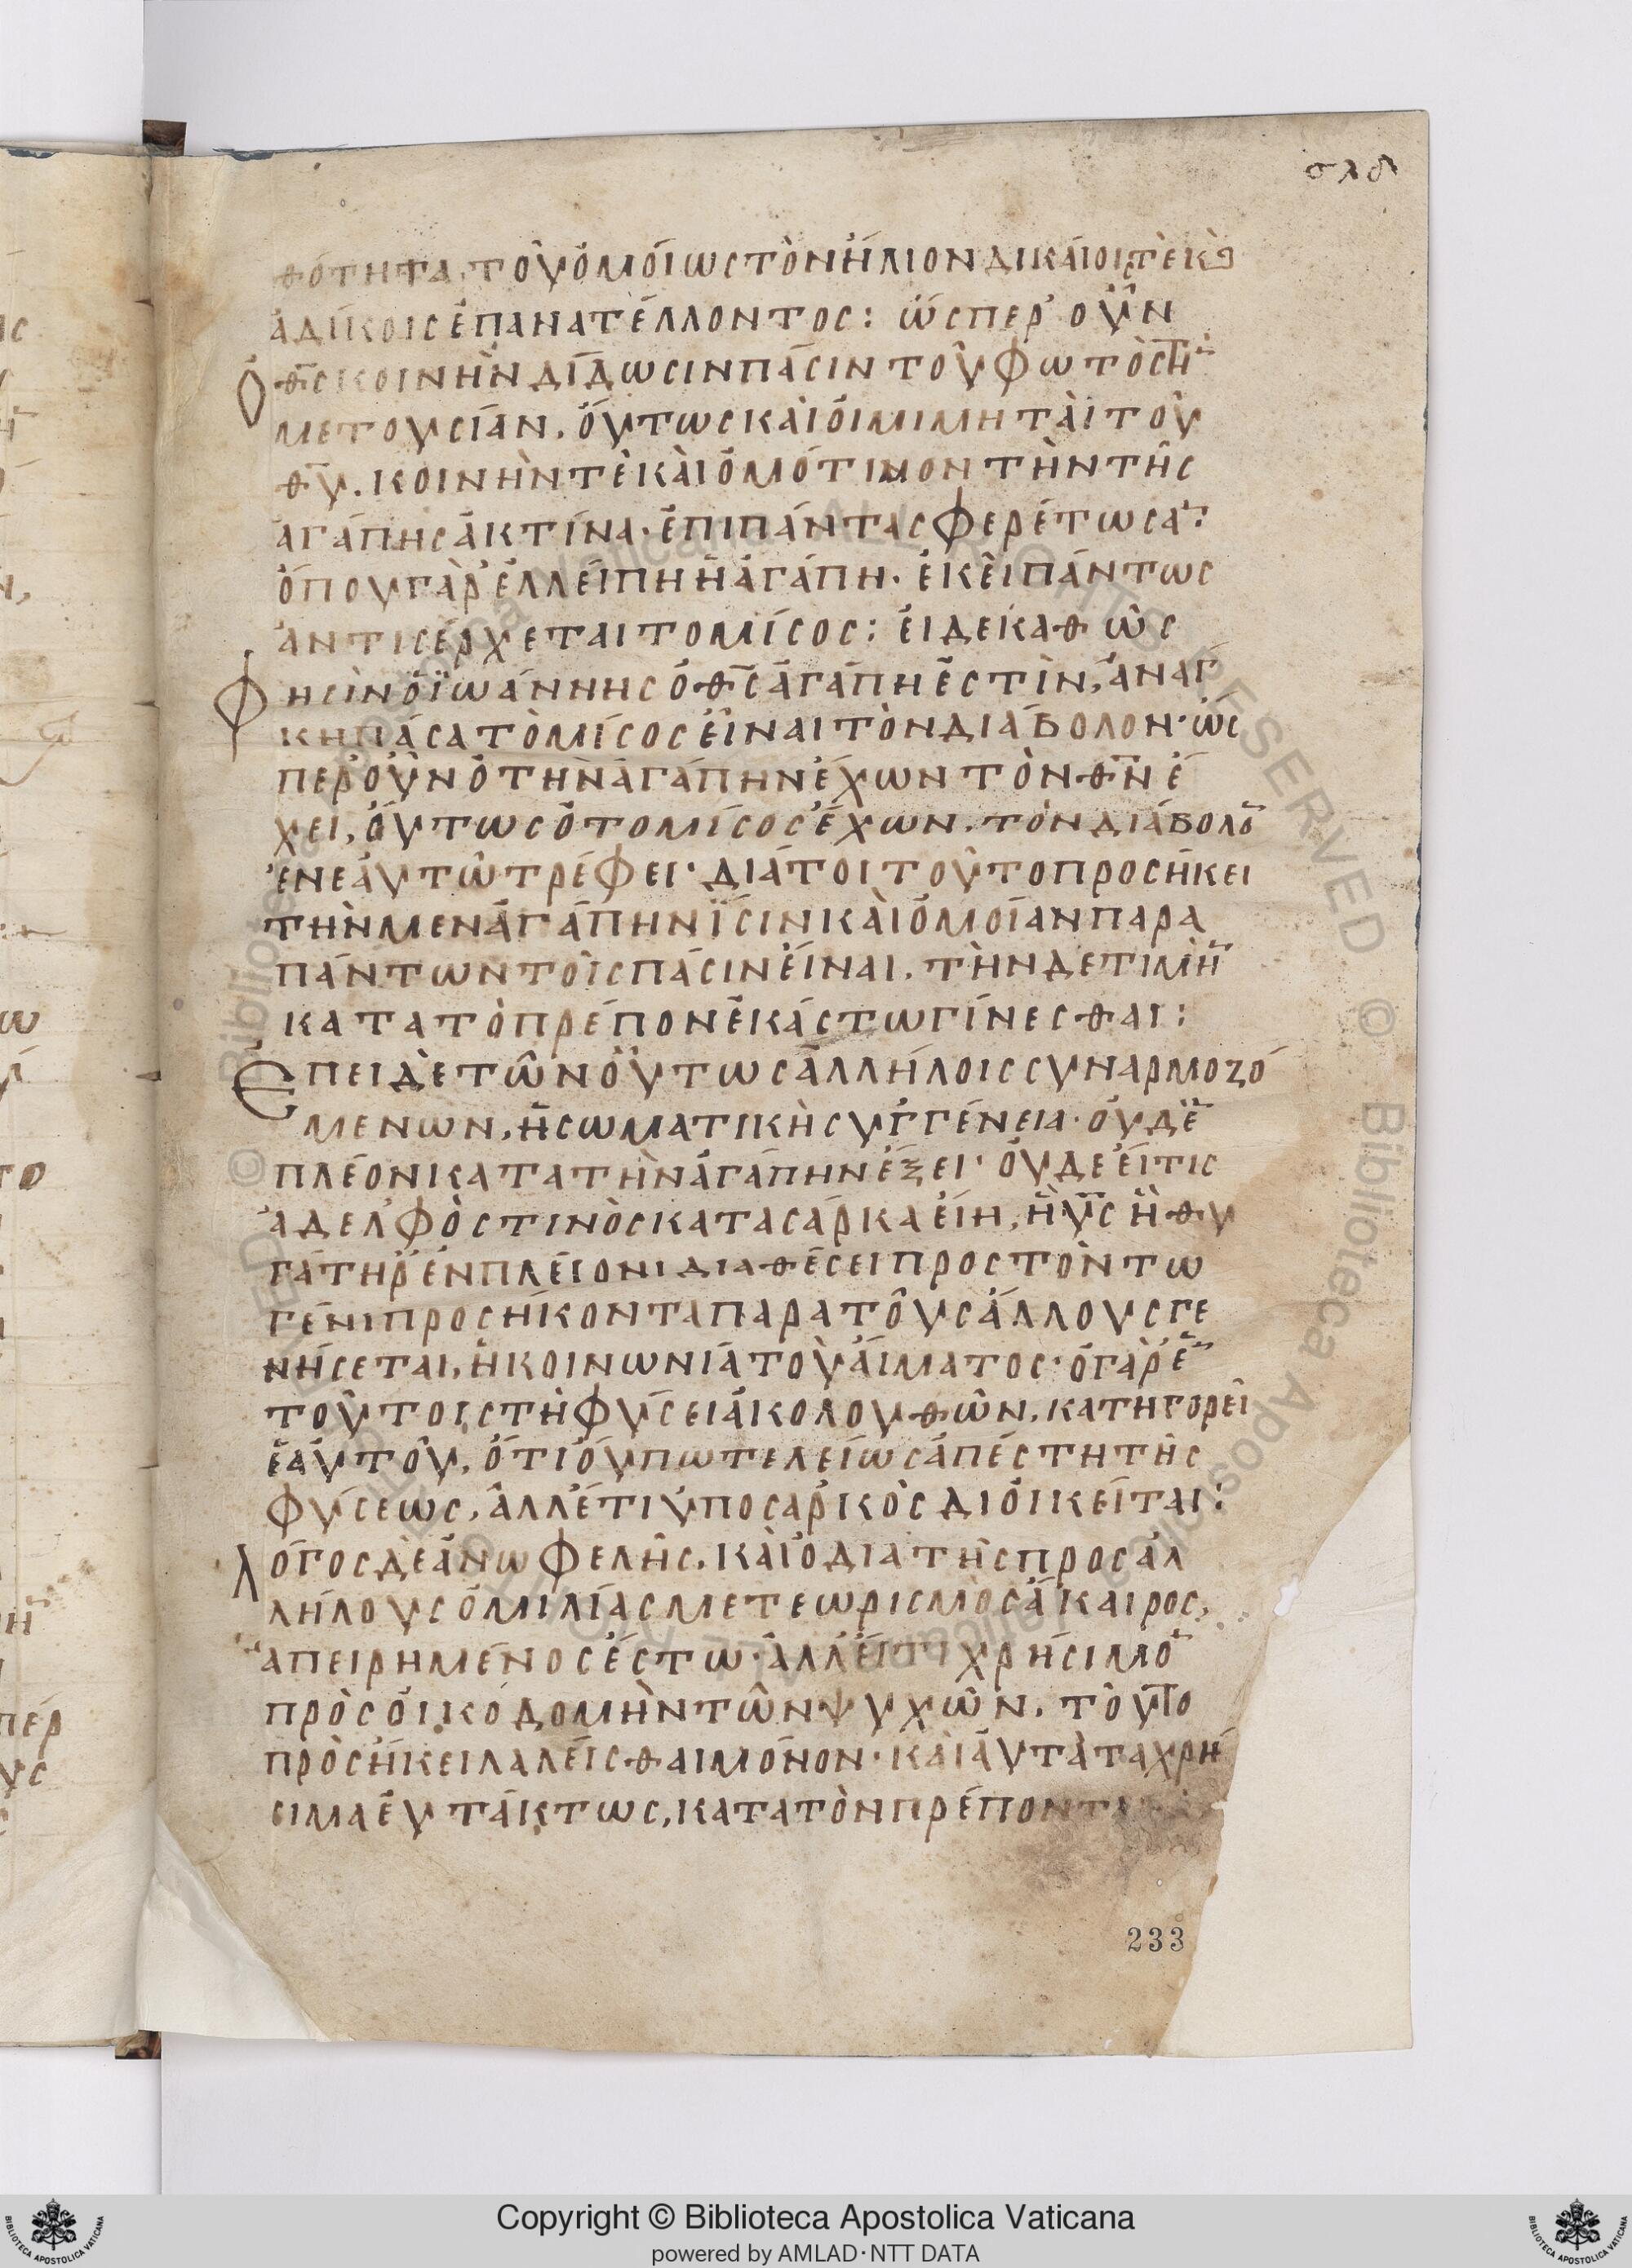 σλδ
θότητα, τοῦ ὁμοίως τὸν ἥλιον δικάιοις τὲ κ(αὶ)
ἀδίκοις ἐπανατέλλοντος: ὥσπερ οὖν
ὁ θ̅ς κοινὴν δίδωσιν πᾶσιν τοῦ φωτὸς τὴ̅
μετουσίαν, ὅυτως κὰι ὁι μιμηταὶ τοῦ
θ̅υ. κοινὴν τὲ κὰι ὁμότιμον τὴν τῆς
ἀγάπης ἀκτίνα· ἐπι πάντας φερέτωσα̅:
ὅπου γὰρ ἐλλείπη ἡ ἀγάπη· ἐκεῖ πάντως
ἀντισέρχεται το μίσος: ἐι δε καθὼς
φησὶν ὁ ϊωάννης ὁ θ̅ς ἀγάπη ἐστὶν, ἀναγ
κη πάσα τὸ μίσος εἶναι τὸν διάβολον· ὡς
περ οὖν ὁ τὴν ἀγάπην ἔχων τὸν θ̅ν ἔ
χει, ὅυτως ὁ το μίσος ἔχων, τὸν διάβολο̅
ἐν εἁυτῶ τρέφει· διά τοι τοῦτο προσήκει
τὴν μεν ἀγάπην ΐσιν κὰι ὁμοίαν παρα
πάντων τοῖς πάσιν εἶναι, τὴν δε τιμὴ̅
κατα τὸ πρέπον ἑκάστω γίνεσθαι:
Επει δὲ τῶν ὅυτως ἀλλήλοις συναρμοζο
μενων, ἡ σωματικὴ συγγένεια· ὀυδὲ̅
πλέον κατα τὴν ἀγάπην ἕξει· ὀυδε εἴτις
ἀδελφὸς τινὸς κατα σάρκα εἴη, ἢ υ̅ς ἢ θυ
γάτηρ ἐν πλείονι διαθέσει προς τὸν τω
γένι προσήκοντα παρα τοὺς ἄλλους γε
νήσεται, ἡ κοινωνιά τοῦ ἅιματος· ὁ γὰρ ἐ̅
τούτοις τῆ φύσει ἀκολουθῶν, κατηγορεῖ
ἑαυτοῦ, ὅτι ὄυπω τελείως ἀπέστη τῆς
φύσεως, ἀλλ' ἔτι ὑπο σαρκὸς διοικεῖται:
Λόγος δὲ ἀνωφελῆς, κὰι ὁ δια τῆς προς ἀλ
λήλους ὁμιλίας μετεωρισμὸς ἄκαιρος,
ἀπειρημένος ἔστω· ἀλλ' εἴ τι χρήσιμο̅
πρὸς ὀικοδομὴν τῶν ψυχῶν, τοῦτο
πρὸσήκει λαλεῖσθαι μόνον· κὰι ἀυτὰ τα χρή
σιμα ἐυτάκτως, κατα τὸν πρέποντα
233
Copyright © Biblioteca Apostolica Vaticana
powered by AMLAD·NTT DATA